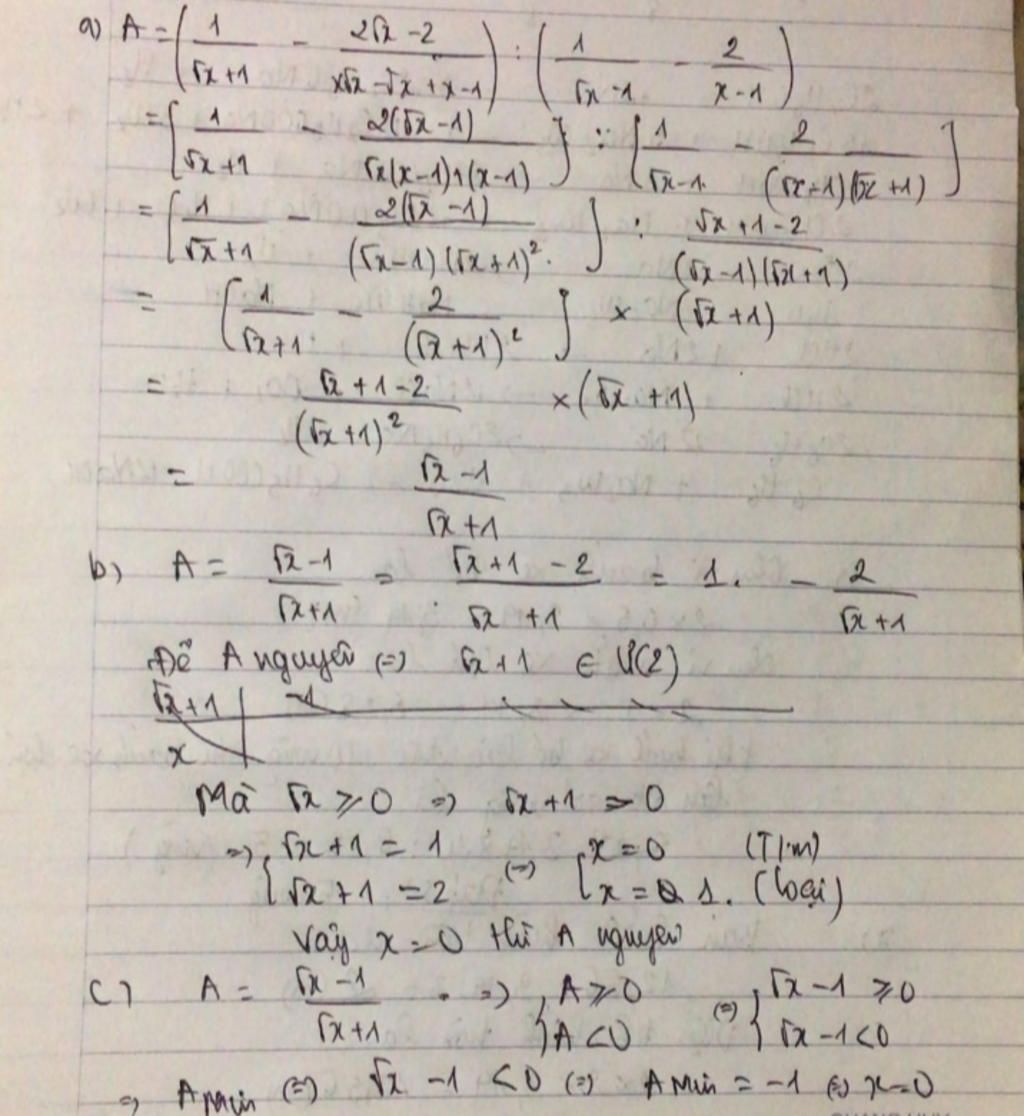 a) A = (1/(√x+1) - (2√x-2)/(x√x-√x+x-1)) : (1/(√x-1) - 2/(x-1))
= [1/(√x+1) - 2(√x-1)/(√x(x-1)+(x-1))] : [1/(√x-1) - 2/((√x-1)(√x+1))]
= [1/(√x+1) - 2(√x-1)/((√x-1)(√x+1)²)] : (√x+1-2)/((√x-1)(√x+1))
= [1/(√x+1) - 2/(√x+1)²] × (√x+1)
= (√x+1-2)/(√x+1)² × (√x+1)
= (√x-1)/(√x+1)
b) A = (√x-1)/(√x+1) = (√x+1-2)/(√x+1) = 1. - 2/(√x+1)
Để A nguyên (=) √x+1 ∈ Ư(2)
√x+1 | -1
x |
Mà √x ≥ 0 => √x+1 > 0
=> { √x+1 = 1 (=) [ x=0 (T/m)
√x+1 = 2 x = 1. (loại)
Vậy x=0 thì A nguyên
c) A = (√x-1)/(√x+1) . => { A ≥ 0 (=) { √x-1 ≥ 0
A < 0 √x-1 < 0
=> A Min (=) √x-1 < 0 (=) A Min = -1 (=) x=0